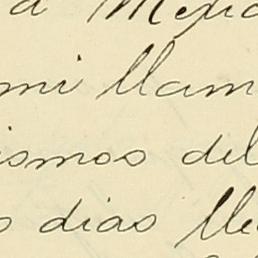 a Mexic
mi llam
ismos del
s dias lle